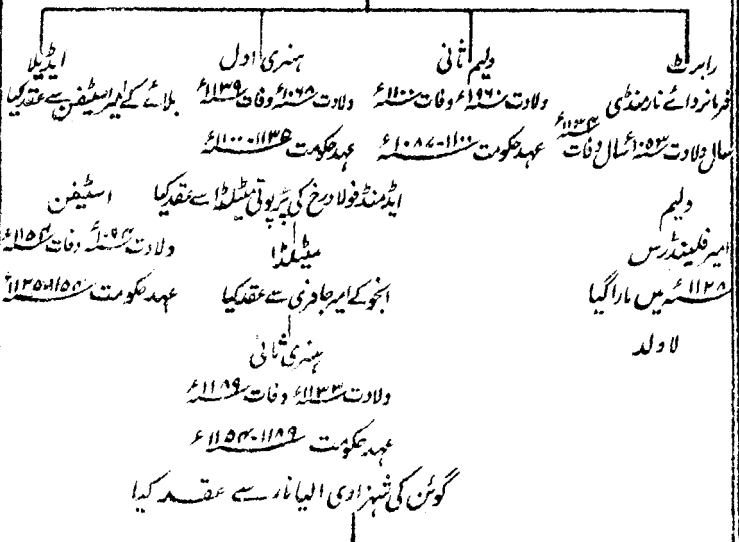 رابرٹ
فرمانروائے نارمنڈی
سالِ ولادت ۱۰۵۳ء سال وفات ۱۱۳۴ء
ولیم
امیر فلینڈرس
۱۱۲۸ء میں مارا گیا
لاولد
ولیم ثانی
ولادت ۱۹۶۰ء وفات ۱۱۰۰ء
عہد حکومت ۱۱۰۰-۱۰۸۷ء
ہنری اول
ولادت ۱۰۶۸ء وفات ۱۱۳۹ء
عہد حکومت ۱۱۳۵-۱۱۰۰ء
ایڈمنڈ فولادرخ کی پرپوتی میٹلڈا سے عقد کیا
میٹلڈا
انجو کے امیر جافری سے عقد کیا
ہنری ثانی
ولادت ۱۱۳۳ء وفات ۱۱۸۹ء
عہد حکومت ۱۱۸۹-۱۱۵۴ء
گوئن کی شہزادی الیانار سے عقد کیا
ایڈیلا
بلائے کے امیر اسٹیفن سے عقد کیا
اسٹیفن
ولادت ۱۰۹۴ء وفات ۱۱۵۴ء
عہد حکومت